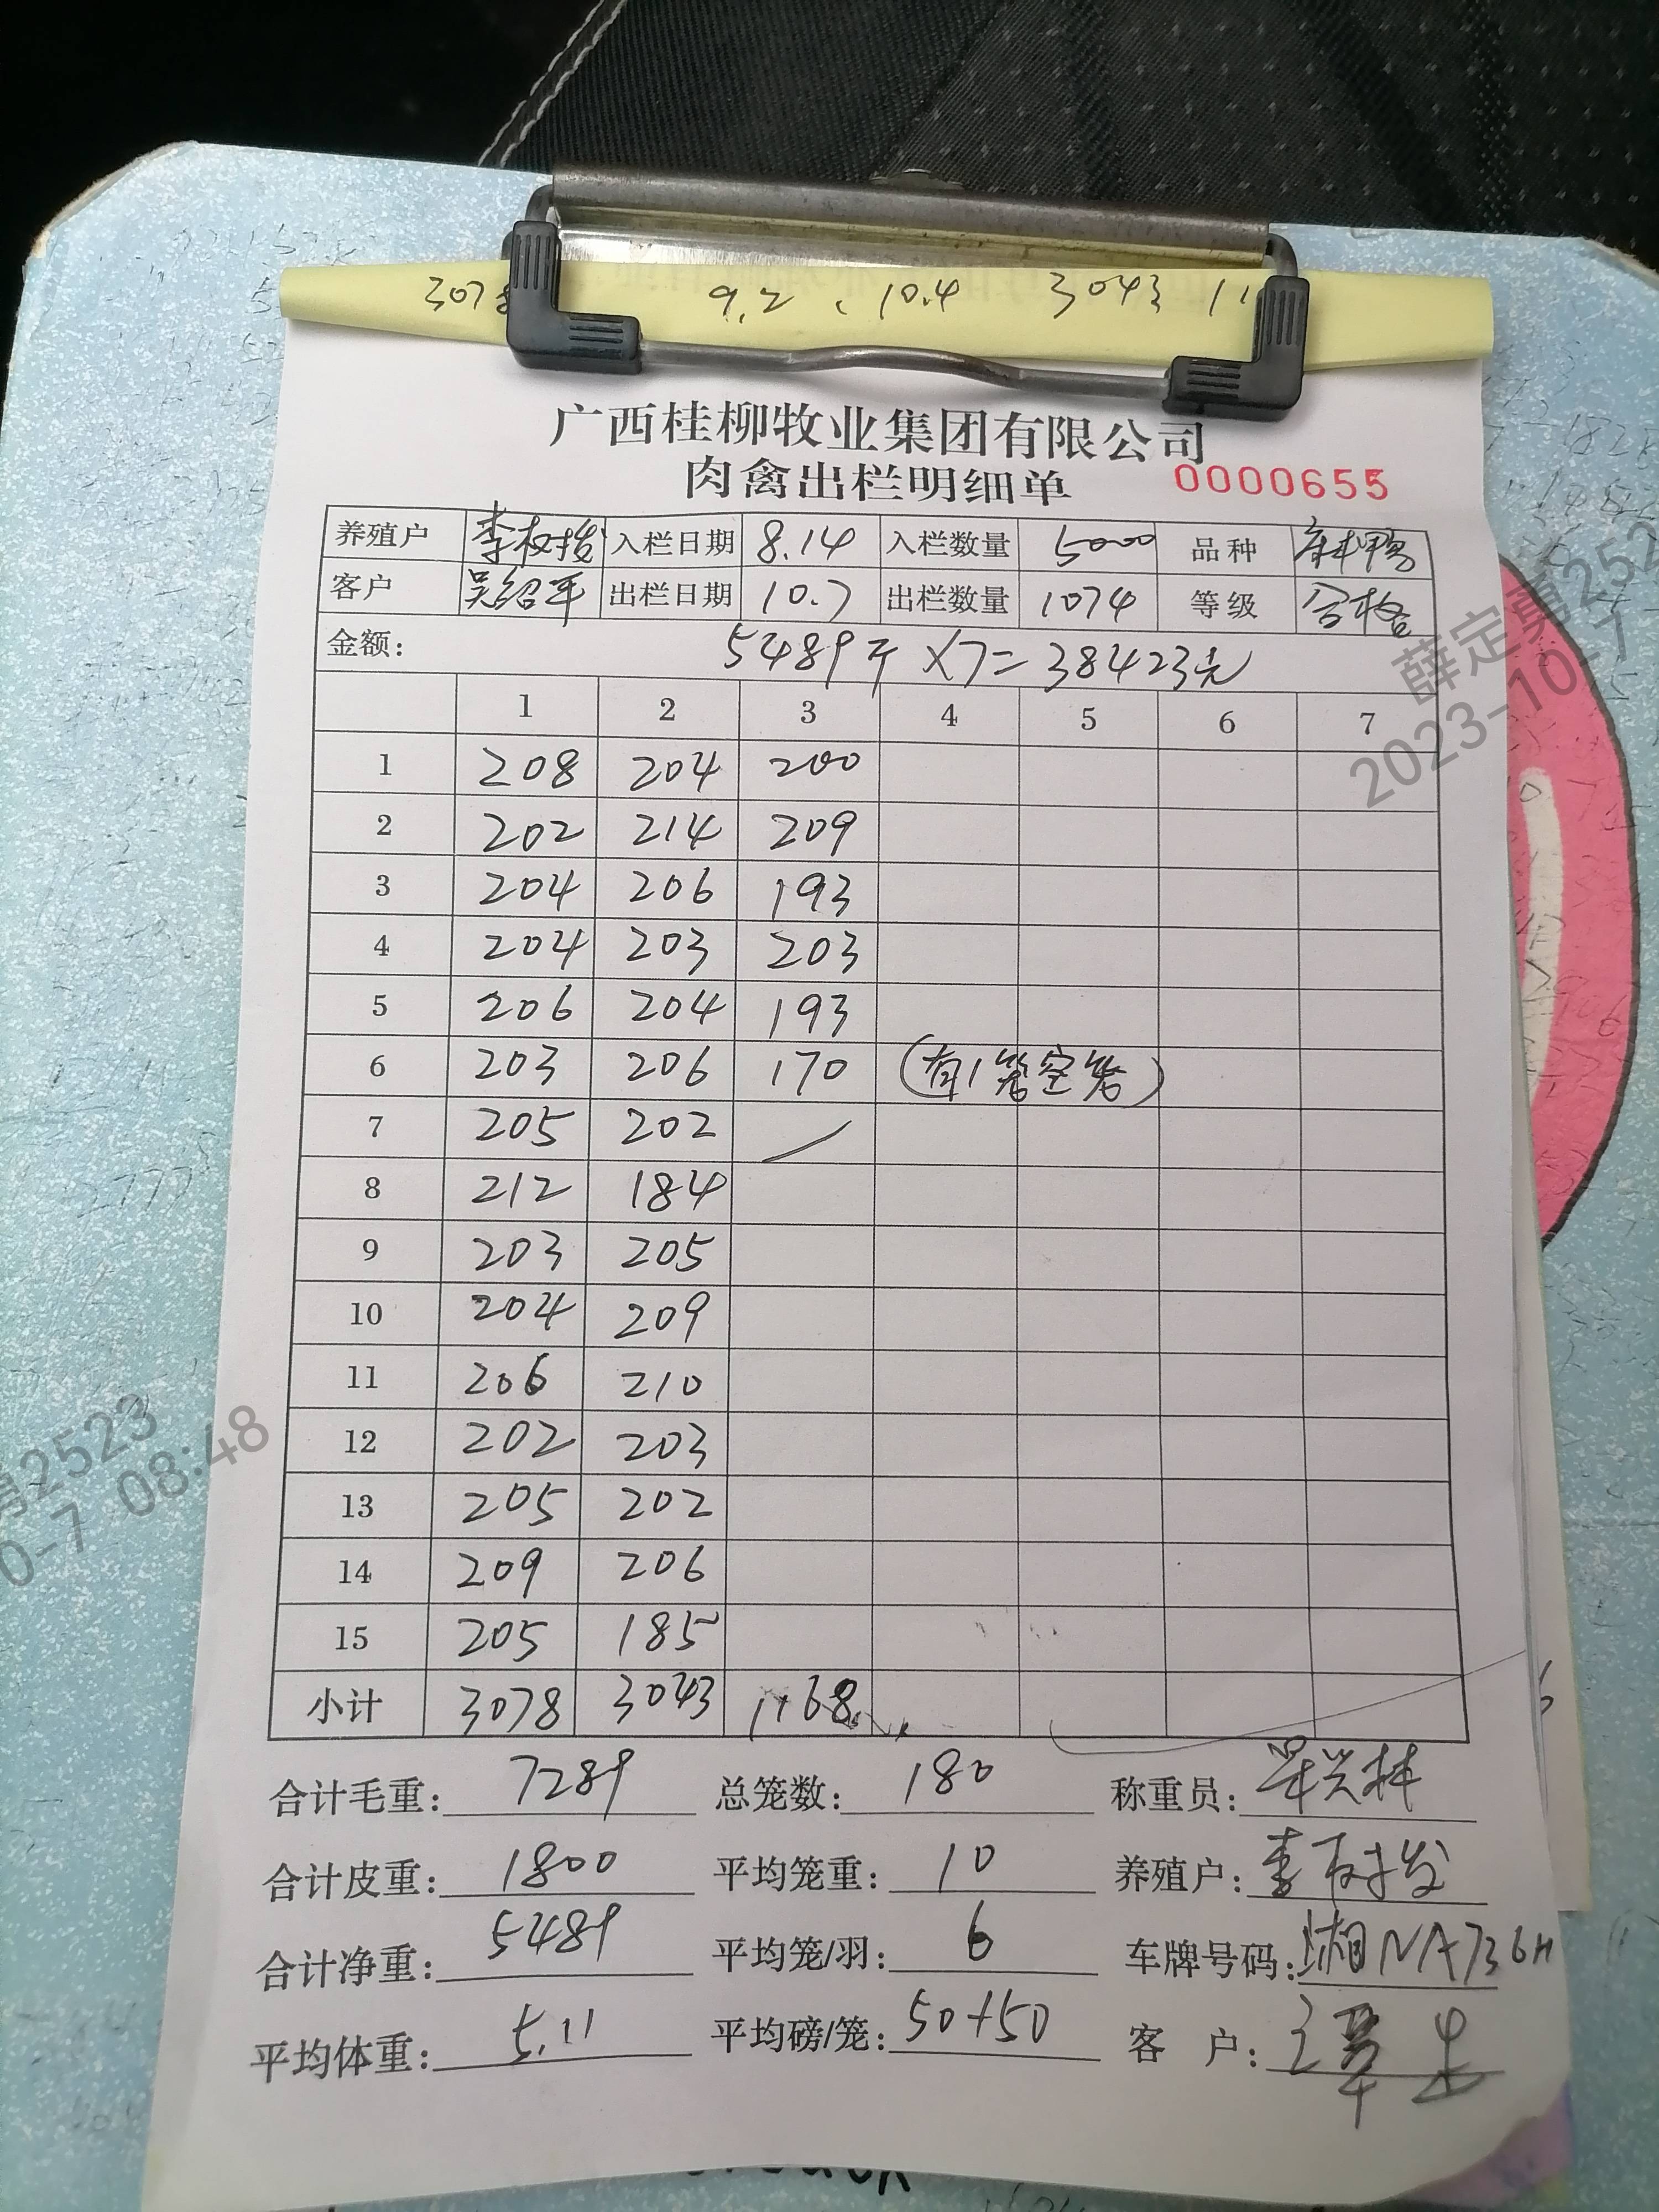 3078 9.2 、10.4 3043 11
广西桂柳牧业集团有限公司
肉禽出栏明细单 0000655
养殖户 李权发 入栏日期 8.14 入栏数量 5000 品种 麻鸭
客户 吴绍军 出栏日期 10.7 出栏数量 1074 等级 合格
金额: 5489斤×7=38423元
1 2 3 4 5 6 7
1 208 204 200
2 202 214 209
3 204 206 193
4 204 203 203
5 206 204 193
6 203 206 170 (有1笼空笼)
7 205 202
8 212 184
9 203 205
10 204 209
11 206 210
12 202 203
13 205 202
14 209 206
15 205 185
小计 3078 3043 1168
合计毛重: 7289 总笼数: 180 称重员:
合计皮重: 1800 平均笼重: 10 养殖户:
合计净重: 5489 平均笼/羽: 6 车牌号码: 湘NA736H
平均体重: 5.11 平均磅/笼: 50+50 客 户:
薛定勇252
2023-10-7
勇2523
0-7 08:48